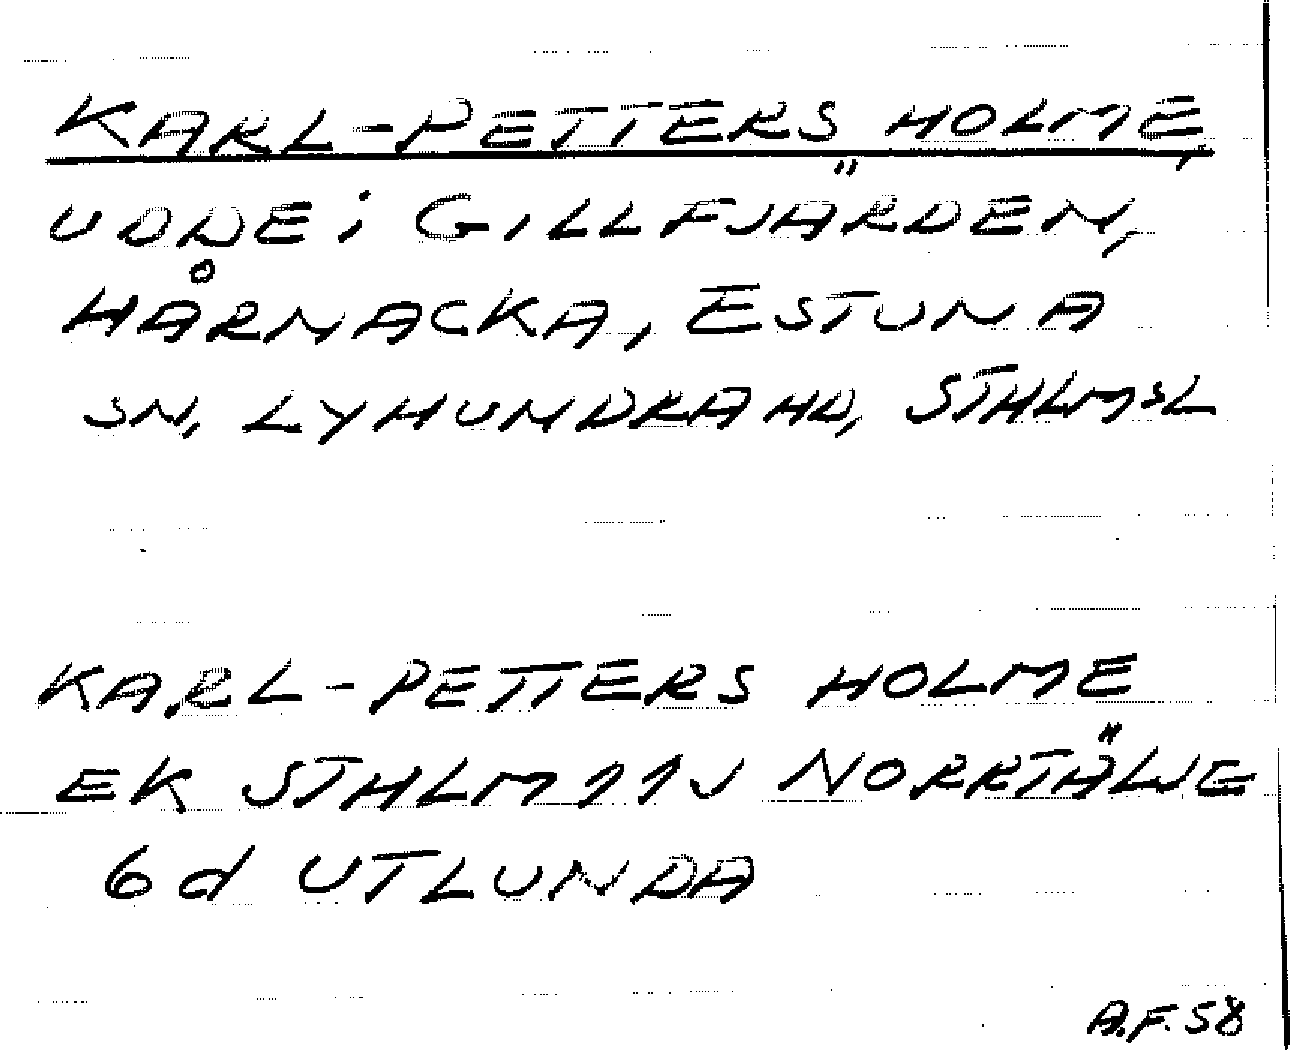 KARL-PETTERS HOLME,
UDDE i GILLFJÄRDEN,
HÅRNACKA, ESTUNA
SN, LYHUNDRA HD, STHLMSL
KARL-PETTERS HOLME
EK STHLM 11J NORRTÄLJE
6d UTLUNDA
A.F. 58